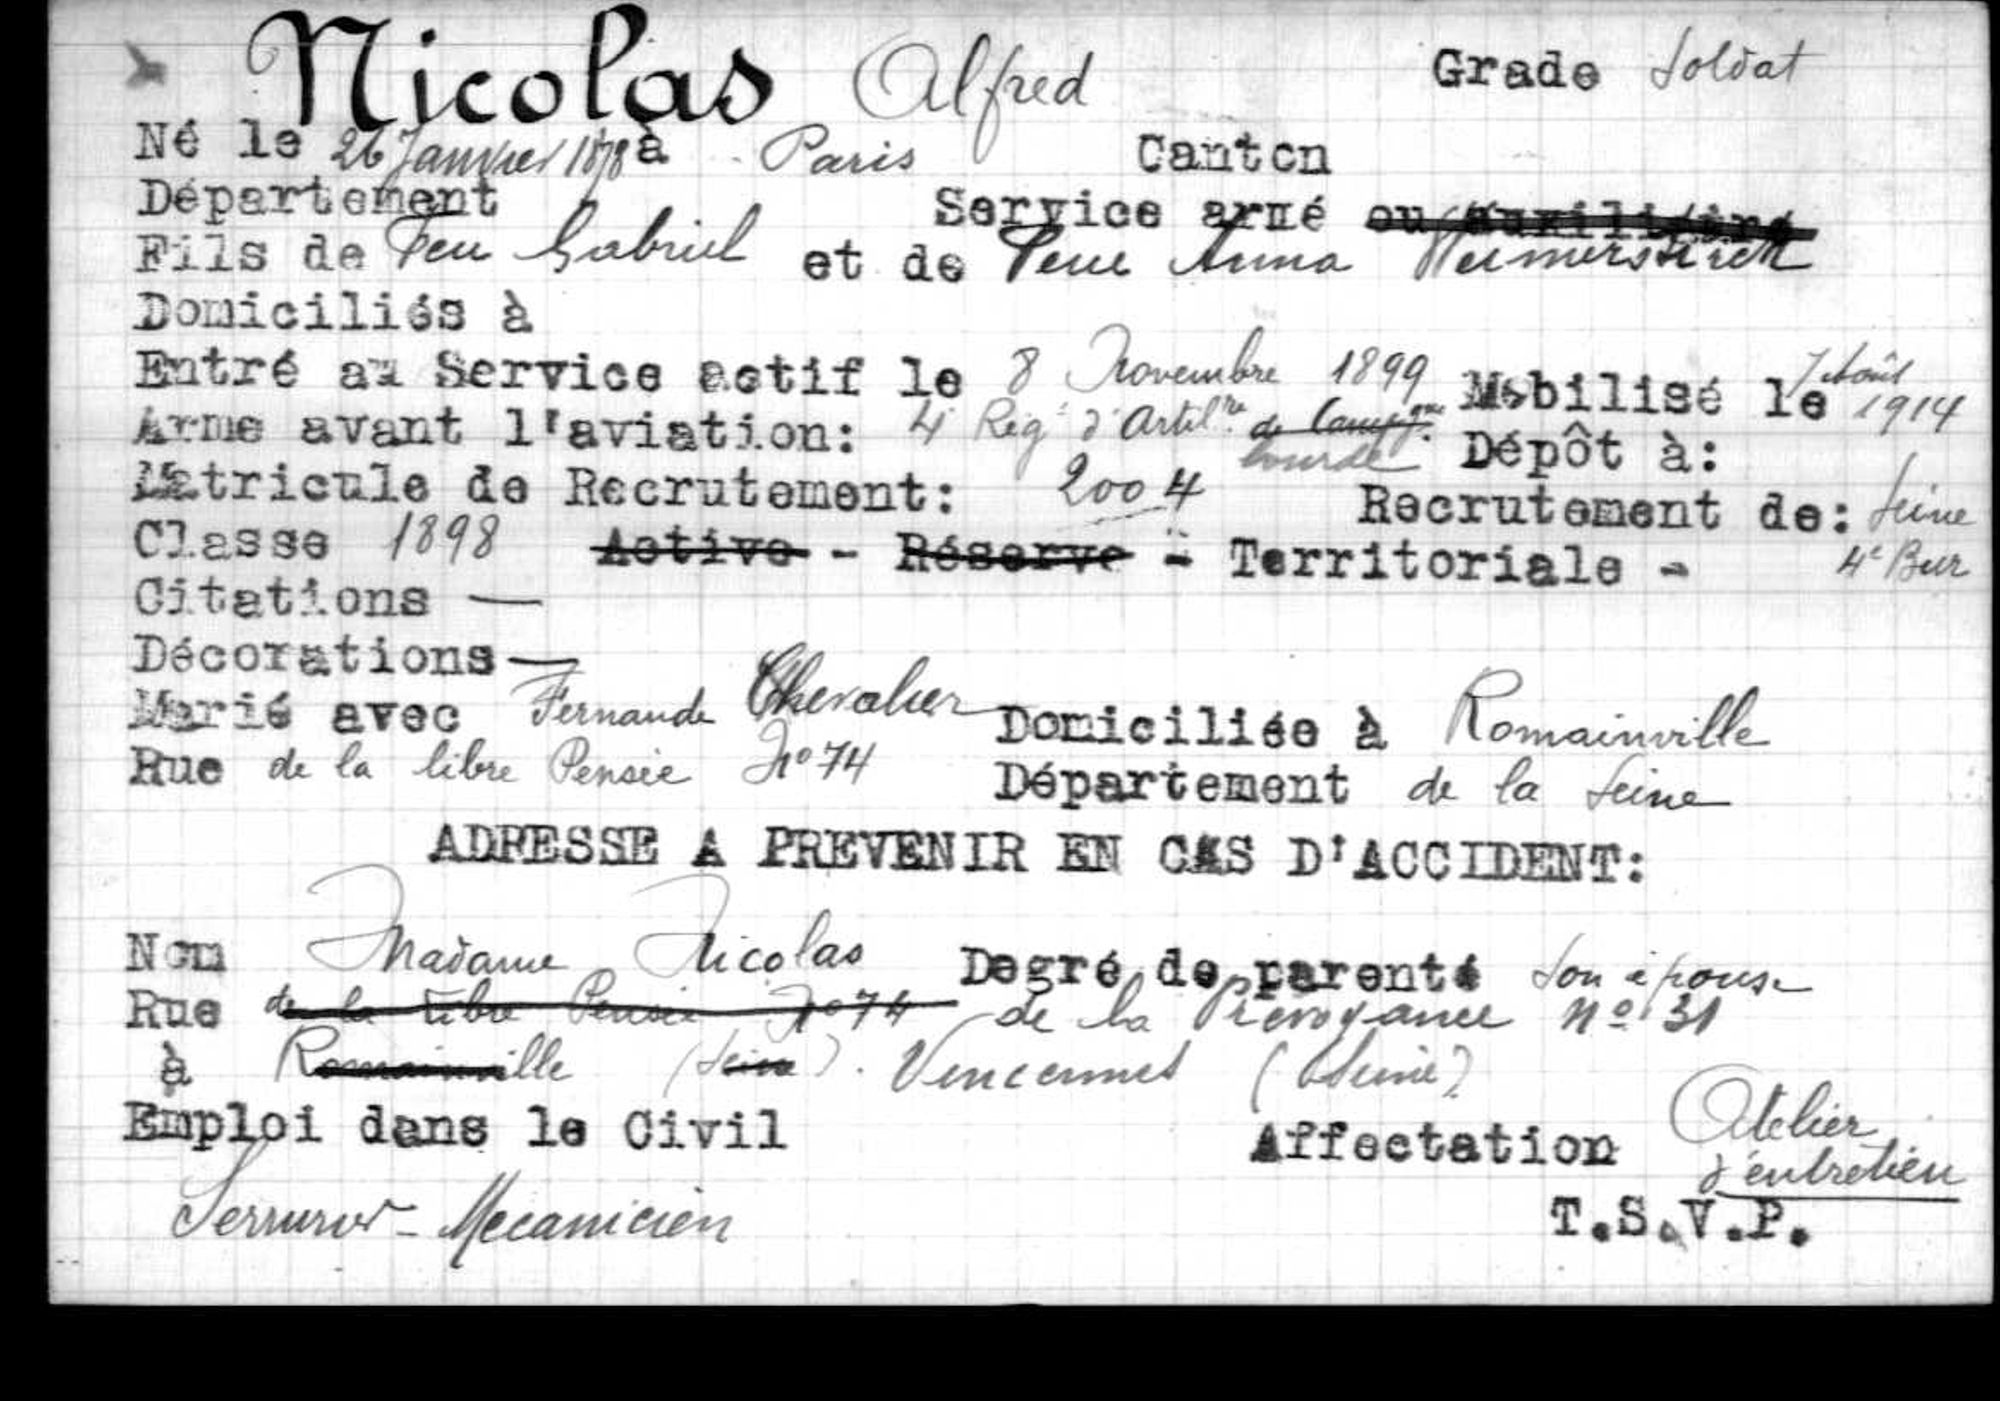 Nicolas Alfred Grade Soldat
Né le 26 Janvier 1878 à Paris Canton
Département Service armé ou auxiliaire
Fils de Feu Gabriel et de Feue Anna
Domiciliés à
Entré au Service actif le 8 Novembre 1899 Mobilisé le 7 Août 1914
Arme avant l'aviation: 4e Régt d'Artilre de Campgne lourde Dépôt à:
Matricule de Recrutement: 2004 Recrutement de: Seine
Classe 1898 Active - Réserve - Territoriale - 4e Bur
Citations —
Décorations —
Marié avec Fernande Chevalier Domiciliée à Romainville
Rue de la libre Pensée No 74 Département de la Seine
ADRESSE A PREVENIR EN CAS D'ACCIDENT:
Nom Madame Nicolas Degré de parenté Son épouse
Rue de la Libre Pensée No 74 de la Prévoyance No 31
à Romainville (Seine). Vincennes (Seine)
Emploi dans le Civil Affectation Atelier d'entretien
Serrurier - Mécanicien T.S.V.P.